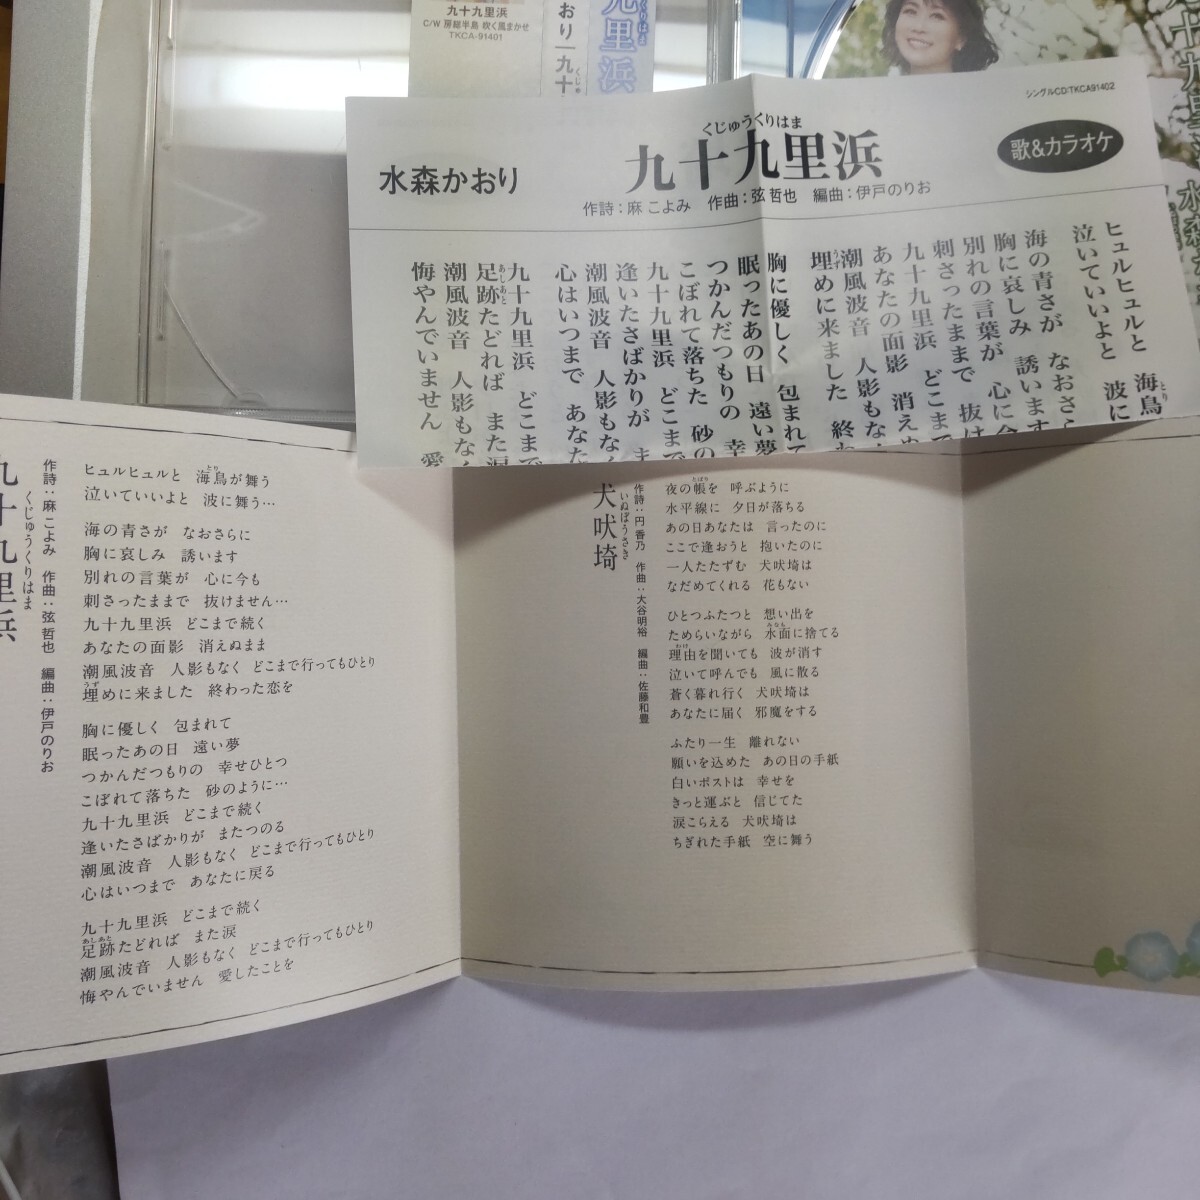 九十九里浜
C/W 房総半島 吹く風まかせ
TKCA-91401
シングルCD:TKCA91402
水森かおり
くじゅうくりはま
九十九里浜
歌&カラオケ
作詩：麻 こよみ 作曲：弦 哲也 編曲：伊戸のりお
ヒュルヒュルと 海鳥
泣いていいよと 波に
海の青さが なおさら
胸に哀しみ 誘います
別れの言葉が 心に今
刺さったままで 抜け
九十九里浜 どこまで
あなたの面影 消えぬ
潮風波音 人影もなく
埋めに来ました 終わ
胸に優しく 包まれて
眠ったあの日 遠い夢
つかんだつもりの 幸
こぼれて落ちた 砂の
九十九里浜 どこまで
逢いたさばかりが ま
潮風波音 人影もなく
心はいつまで あなた
九十九里浜 どこまで
足跡たどれば また涙
潮風波音 人影もなく
悔やんでいません 愛
九十九里浜
くじゅうくりはま
作詩：麻 こよみ 作曲：弦 哲也 編曲：伊戸のりお
ヒュルヒュルと 海鳥が舞う
泣いていいよと 波に舞う…
海の青さが なおさらに
胸に哀しみ 誘います
別れの言葉が 心に今も
刺さったままで 抜けません…
九十九里浜 どこまで続く
あなたの面影 消えぬまま
潮風波音 人影もなく どこまで行ってもひとり
埋めに来ました 終わった恋を
胸に優しく 包まれて
眠ったあの日 遠い夢
つかんだつもりの 幸せひとつ
こぼれて落ちた 砂のように…
九十九里浜 どこまで続く
逢いたさばかりが またつのる
潮風波音 人影もなく どこまで行ってもひとり
心はいつまで あなたに戻る
九十九里浜 どこまで続く
足跡たどれば また涙
潮風波音 人影もなく どこまで行ってもひとり
悔やんでいません 愛したことを
犬吠埼
いぬぼうさき
作詩：円 香乃 作曲：大谷明裕 編曲：佐藤和豊
夜の帳を 呼ぶように
水平線に 夕日が落ちる
あの日あなたは 言ったのに
ここで逢おうと 抱いたのに
一人たたずむ 犬吠埼は
なだめてくれる 花もない
ひとつふたつと 想い出を
ためらいながら 水面に捨てる
理由を聞いても 波が消す
泣いて呼んでも 風に散る
蒼く暮れ行く 犬吠埼は
あなたに届く 邪魔をする
ふたり一生 離れない
願いを込めた あの日の手紙
白いポストは 幸せを
きっと運ぶと 信じてた
涙こらえる 犬吠埼は
ちぎれた手紙 空に舞う